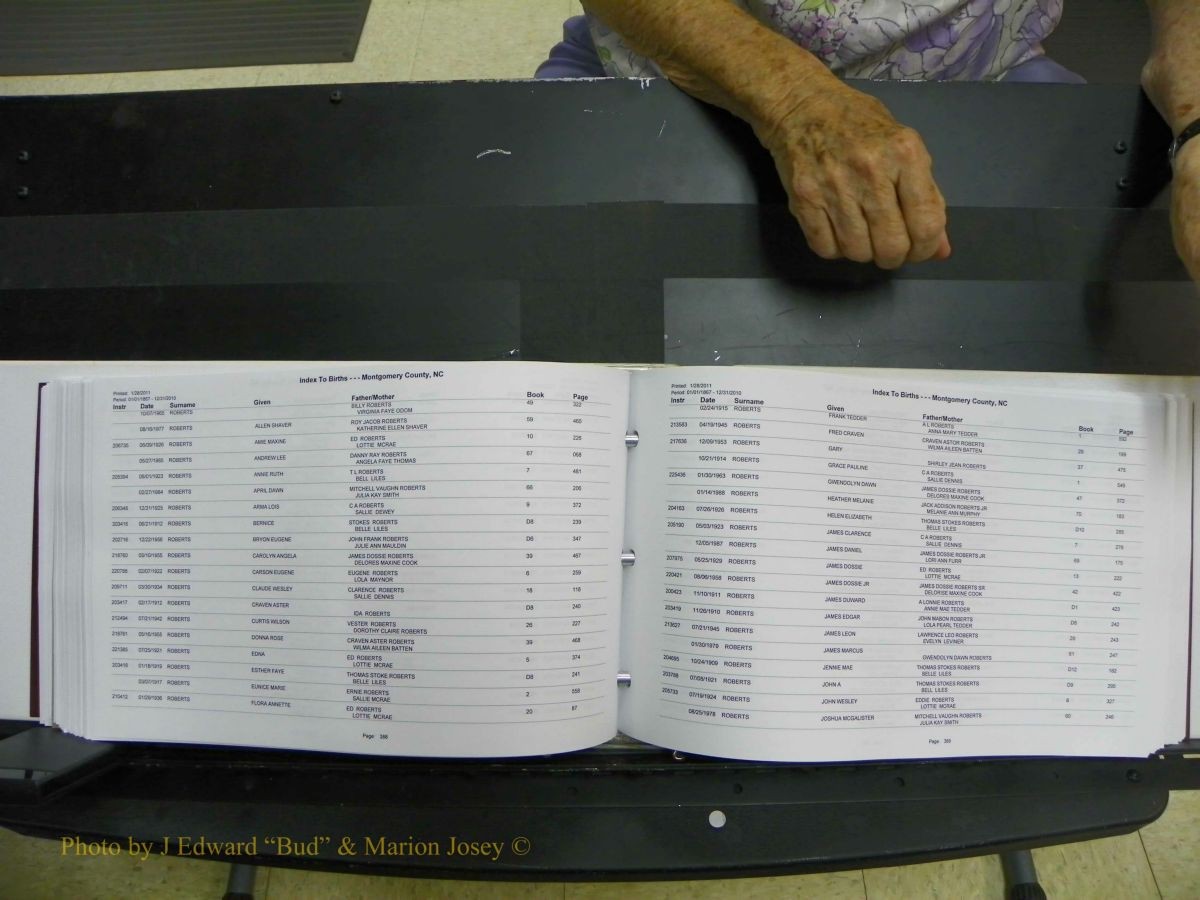 Index To Births - - - Montgomery County, NC
Printed: 1/28/2011
Period: 01/01/1867 - 12/31/2010
Instr Date Surname Given Father/Mother Book Page
10/07/1965 ROBERTS BILLY ROBERTS 49 322
VIRGINIA FAYE ODOM
08/19/1977 ROBERTS ALLEN SHAVER ROY JACOB ROBERTS 59 460
KATHERINE ELLEN SHAVER
ROBERTS AMIE MAXINE ED ROBERTS 10 226
LOTTIE MCRAE
ROBERTS ANDREW LEE DANNY RAY ROBERTS 67 068
ANGELA FAYE THOMAS
ROBERTS ANNIE RUTH T L ROBERTS 7 481
BELL LILES
02/27/1984 ROBERTS APRIL DAWN MITCHELL VAUGHN ROBERTS 66 206
JULIA KAY SMITH
12/31/1925 ROBERTS ARMA LOIS C A ROBERTS 9 372
SALLIE DEWEY
203416 06/21/1912 ROBERTS BERNICE STOKES ROBERTS D8 239
BELLE LILES
12/22/1956 ROBERTS BRYON EUGENE JOHN FRANK ROBERTS D8 347
JULIE ANN MAULDIN
ROBERTS CAROLYN ANGELA JAMES DOSSIE ROBERTS 39 467
DELORES MAXINE COOK
ROBERTS CARSON EUGENE EUGENE ROBERTS 6 259
LOLA MAYNOR
ROBERTS CLAUDE WESLEY CLARENCE ROBERTS 18 116
SALLIE DENNIS
203417 02/17/1912 ROBERTS CRAVEN ASTER D8 240
IDA ROBERTS
212494 07/21/1942 ROBERTS CURTIS WILSON VESTER ROBERTS 26 227
DOROTHY CLAIRE ROBERTS
ROBERTS DONNA ROSE CRAVEN ASTER ROBERTS 39 468
WILMA AILEEN BATTEN
221385 07/25/1921 ROBERTS EDNA ED ROBERTS 5 374
LOTTIE MCRAE
01/18/1919 ROBERTS ESTHER FAYE THOMAS STOKE ROBERTS D8 241
BELLE LILES
03/07/1917 ROBERTS EUNICE MARIE ERNIE ROBERTS 2 558
SALLIE MCRAE
210412 01/29/1936 ROBERTS FLORA ANNETTE ED ROBERTS 20 87
LOTTIE MCRAE
Page 388
Index To Births - - - Montgomery County, NC
Printed: 1/28/2011
Period: 01/01/1867 - 12/31/2010
Instr Date Surname Given Father/Mother Book Page
02/24/1915 ROBERTS FRANK TEDDER A L ROBERTS 1
ANNA MARY TEDDER
213583 04/19/1945 ROBERTS FRED CRAVEN CRAVEN ASTOR ROBERTS 28 199
WILMA AILEEN BATTEN
217636 12/09/1953 ROBERTS GARY 37 475
SHIRLEY JEAN ROBERTS
10/21/1914 ROBERTS GRACE PAULINE C A ROBERTS 1 549
SALLIE DENNIS
225436 01/30/1963 ROBERTS GWENDOLYN DAWN JAMES DOSSIE ROBERTS 47 372
DELORES MAXINE COOK
01/14/1988 ROBERTS HEATHER MELANIE JACK ADDISON ROBERTS JR 70 183
MELANIE ANN MURPHY
204163 07/26/1926 ROBERTS HELEN ELIZABETH THOMAS STOKES ROBERTS D10 285
BELLE LILES
205190 05/03/1923 ROBERTS JAMES CLARENCE C A ROBERTS 7 276
SALLIE DENNIS
12/05/1987 ROBERTS JAMES DANIEL JAMES DOSSIE ROBERTS JR 69 175
LORI ANN FURR
207975 05/25/1929 ROBERTS JAMES DOSSIE ED ROBERTS 13 222
LOTTIE MCRAE
220421 08/06/1958 ROBERTS JAMES DOSSIE JR JAMES DOSSIE ROBERTS SR 42 422
DELORISE MAXINE COOK
200423 11/10/1911 ROBERTS JAMES DUWARD A LONNIE ROBERTS D1 423
ANNIE MAE TEDDER
203419 11/26/1910 ROBERTS JAMES EDGAR JOHN MABON ROBERTS D8 242
LOLA PEARL TEDDER
213627 07/21/1945 ROBERTS JAMES LEON LAWRENCE LEO ROBERTS 28 243
EVELYN LEVINER
01/30/1979 ROBERTS JAMES MARCUS 61 247
GWENDOLYN DAWN ROBERTS
204695 10/24/1909 ROBERTS JENNIE MAE THOMAS STOKES ROBERTS D12 182
BELLE LILES
203788 07/08/1921 ROBERTS JOHN A THOMAS STOKES ROBERTS D9 295
BELL LILES
205733 07/19/1924 ROBERTS JOHN WESLEY EDDIE ROBERTS 8 327
LOTTIE MCRAE
08/25/1978 ROBERTS JOSHUA MCGALISTER MITCHELL VAUGHN ROBERTS 60 246
JULIA KAY SMITH
Page 389
Photo by J Edward “Bud” & Marion Josey ©